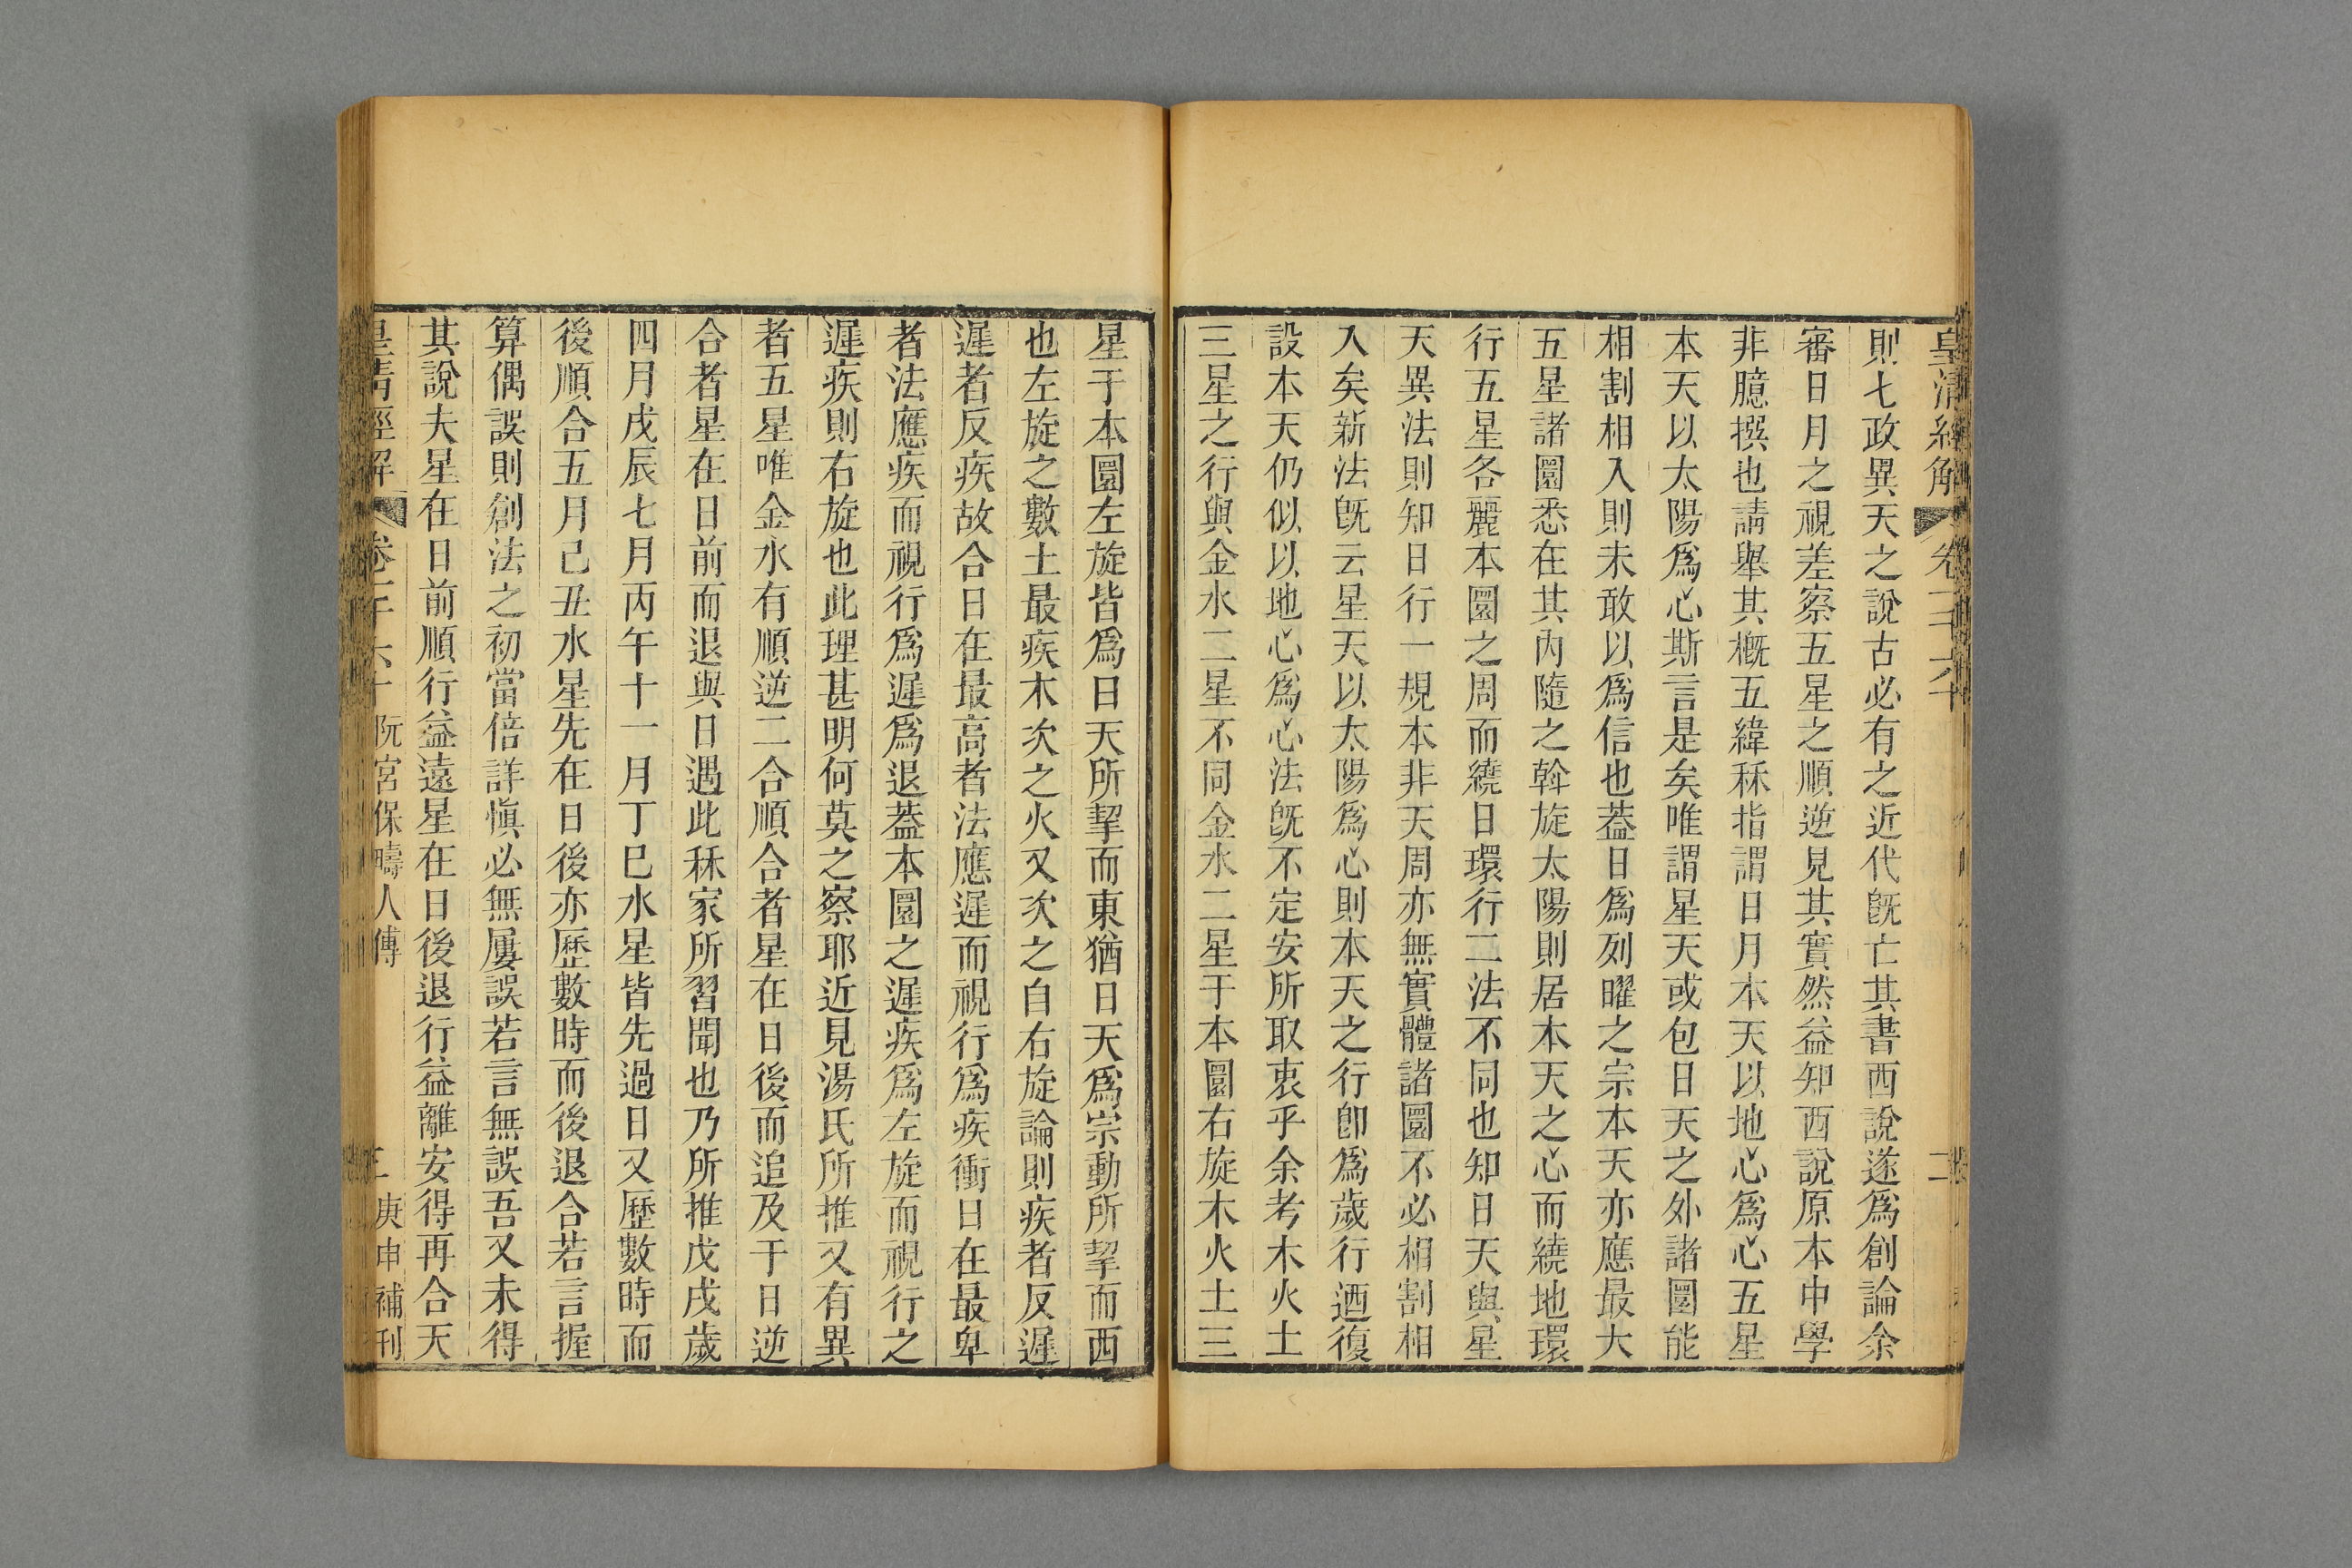 皇清經解 卷二十六十 二
則七政異天之說古必有之近代旣亡其書西說遂爲創論余
審日月之視差察五星之順逆見其實然益知西說原本中學
非臆撰也請舉其概五緯秝指謂日月本天以地心爲心五星
本天以太陽爲心斯言是矣唯謂星天或包日天之外諸圜能
相割相入則未敢以爲信也蓋日爲列曜之宗本天亦應最大
五星諸圜悉在其內隨之斡旋太陽則居本天之心而繞地環
行五星各麗本圜之周而繞日環行二法不同也知日天與星
天異法則知日行一規本非天周亦無實體諸圜不必相割相
入矣新法旣云星天以太陽爲心則本天之行卽爲歲行迺復
設本天仍似以地心爲心法旣不定安所取衷乎余考木火土
三星之行與金水二星不同金水二星于本圜右旋木火土三
星于本圜左旋皆爲日天所挈而東猶日天爲宗動所挈而西
也左旋之數土最疾木次之火又次之自右旋論則疾者反遲
遲者反疾故合日在最高者法應遲而視行爲疾衝日在最卑
者法應疾而視行爲遲爲退蓋本圜之遲疾爲左旋而視行之
遲疾則右旋也此理甚明何莫之察耶近見湯氏所推又有異
者五星唯金水有順逆二合順合者星在日後而追及于日逆
合者星在日前而退與日遇此秝家所習聞也乃所推戊戌歲
四月戊辰七月丙午十一月丁巳水星皆先過日又歷數時而
後順合五月己丑水星先在日後亦歷數時而後退合若言握
算偶誤則創法之初當倍詳愼必無屢誤若言無誤吾又未得
其說夫星在日前順行益遠星在日後退行益離安得再合天
皇清經解 卷二十六十 阮宮保疇人傳 三 庚申補刊